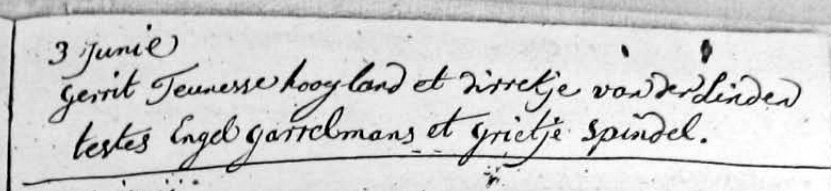 3 Junie
gerrit Teunesse hoogland et dirretje van der linden
testes Engel garrelmans et grietje spindel.